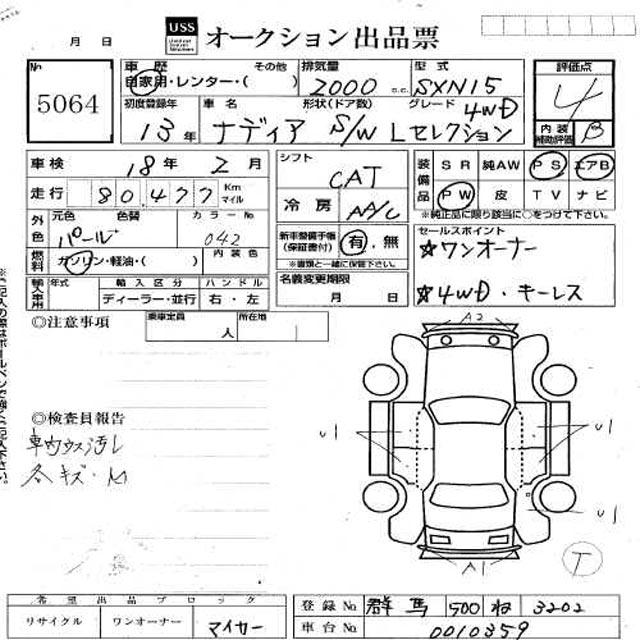 月 日 USS オークション出品票
No 5064
車歴 自家用・レンター・( ) その他
排気量 2000 c.c.
型式 SXN15
評価点 4
内装補助評価 B
初度登録年 13年
車名 ナディア
形状(ドア数) S/W
グレード 4WD Lセレクション
車検 18年 2月
走行 80,477 Km マイル
シフト CAT
冷房 AA/C
装備品 SR 純AW PS エアB
PW 皮 TV ナビ
※純正品に限り該当に○をつけて下さい。
外色 元色 パール 色替 カラーNo 042
燃料 ガソリン・軽油・( ) 内装色
新車整備手帳(保証書付) 有・無
※書類と一緒に保管下さい。
セールスポイント
☆ワンオーナー
☆4WD・キーレス
輸入車用 年式 輸入区分 ハンドル
ディーラー・並行 右・左
名義変更期限
月 日
◎注意事項 乗車定員 人 所在地
A2
◎検査員報告
車内ウス汚レ
各キズ・M
U1
U1
U1
A1
T
希望出品ブロック
リサイクル ワンオーナー マイカー
登録No 群馬 500 ね 3202
車台No 0010359